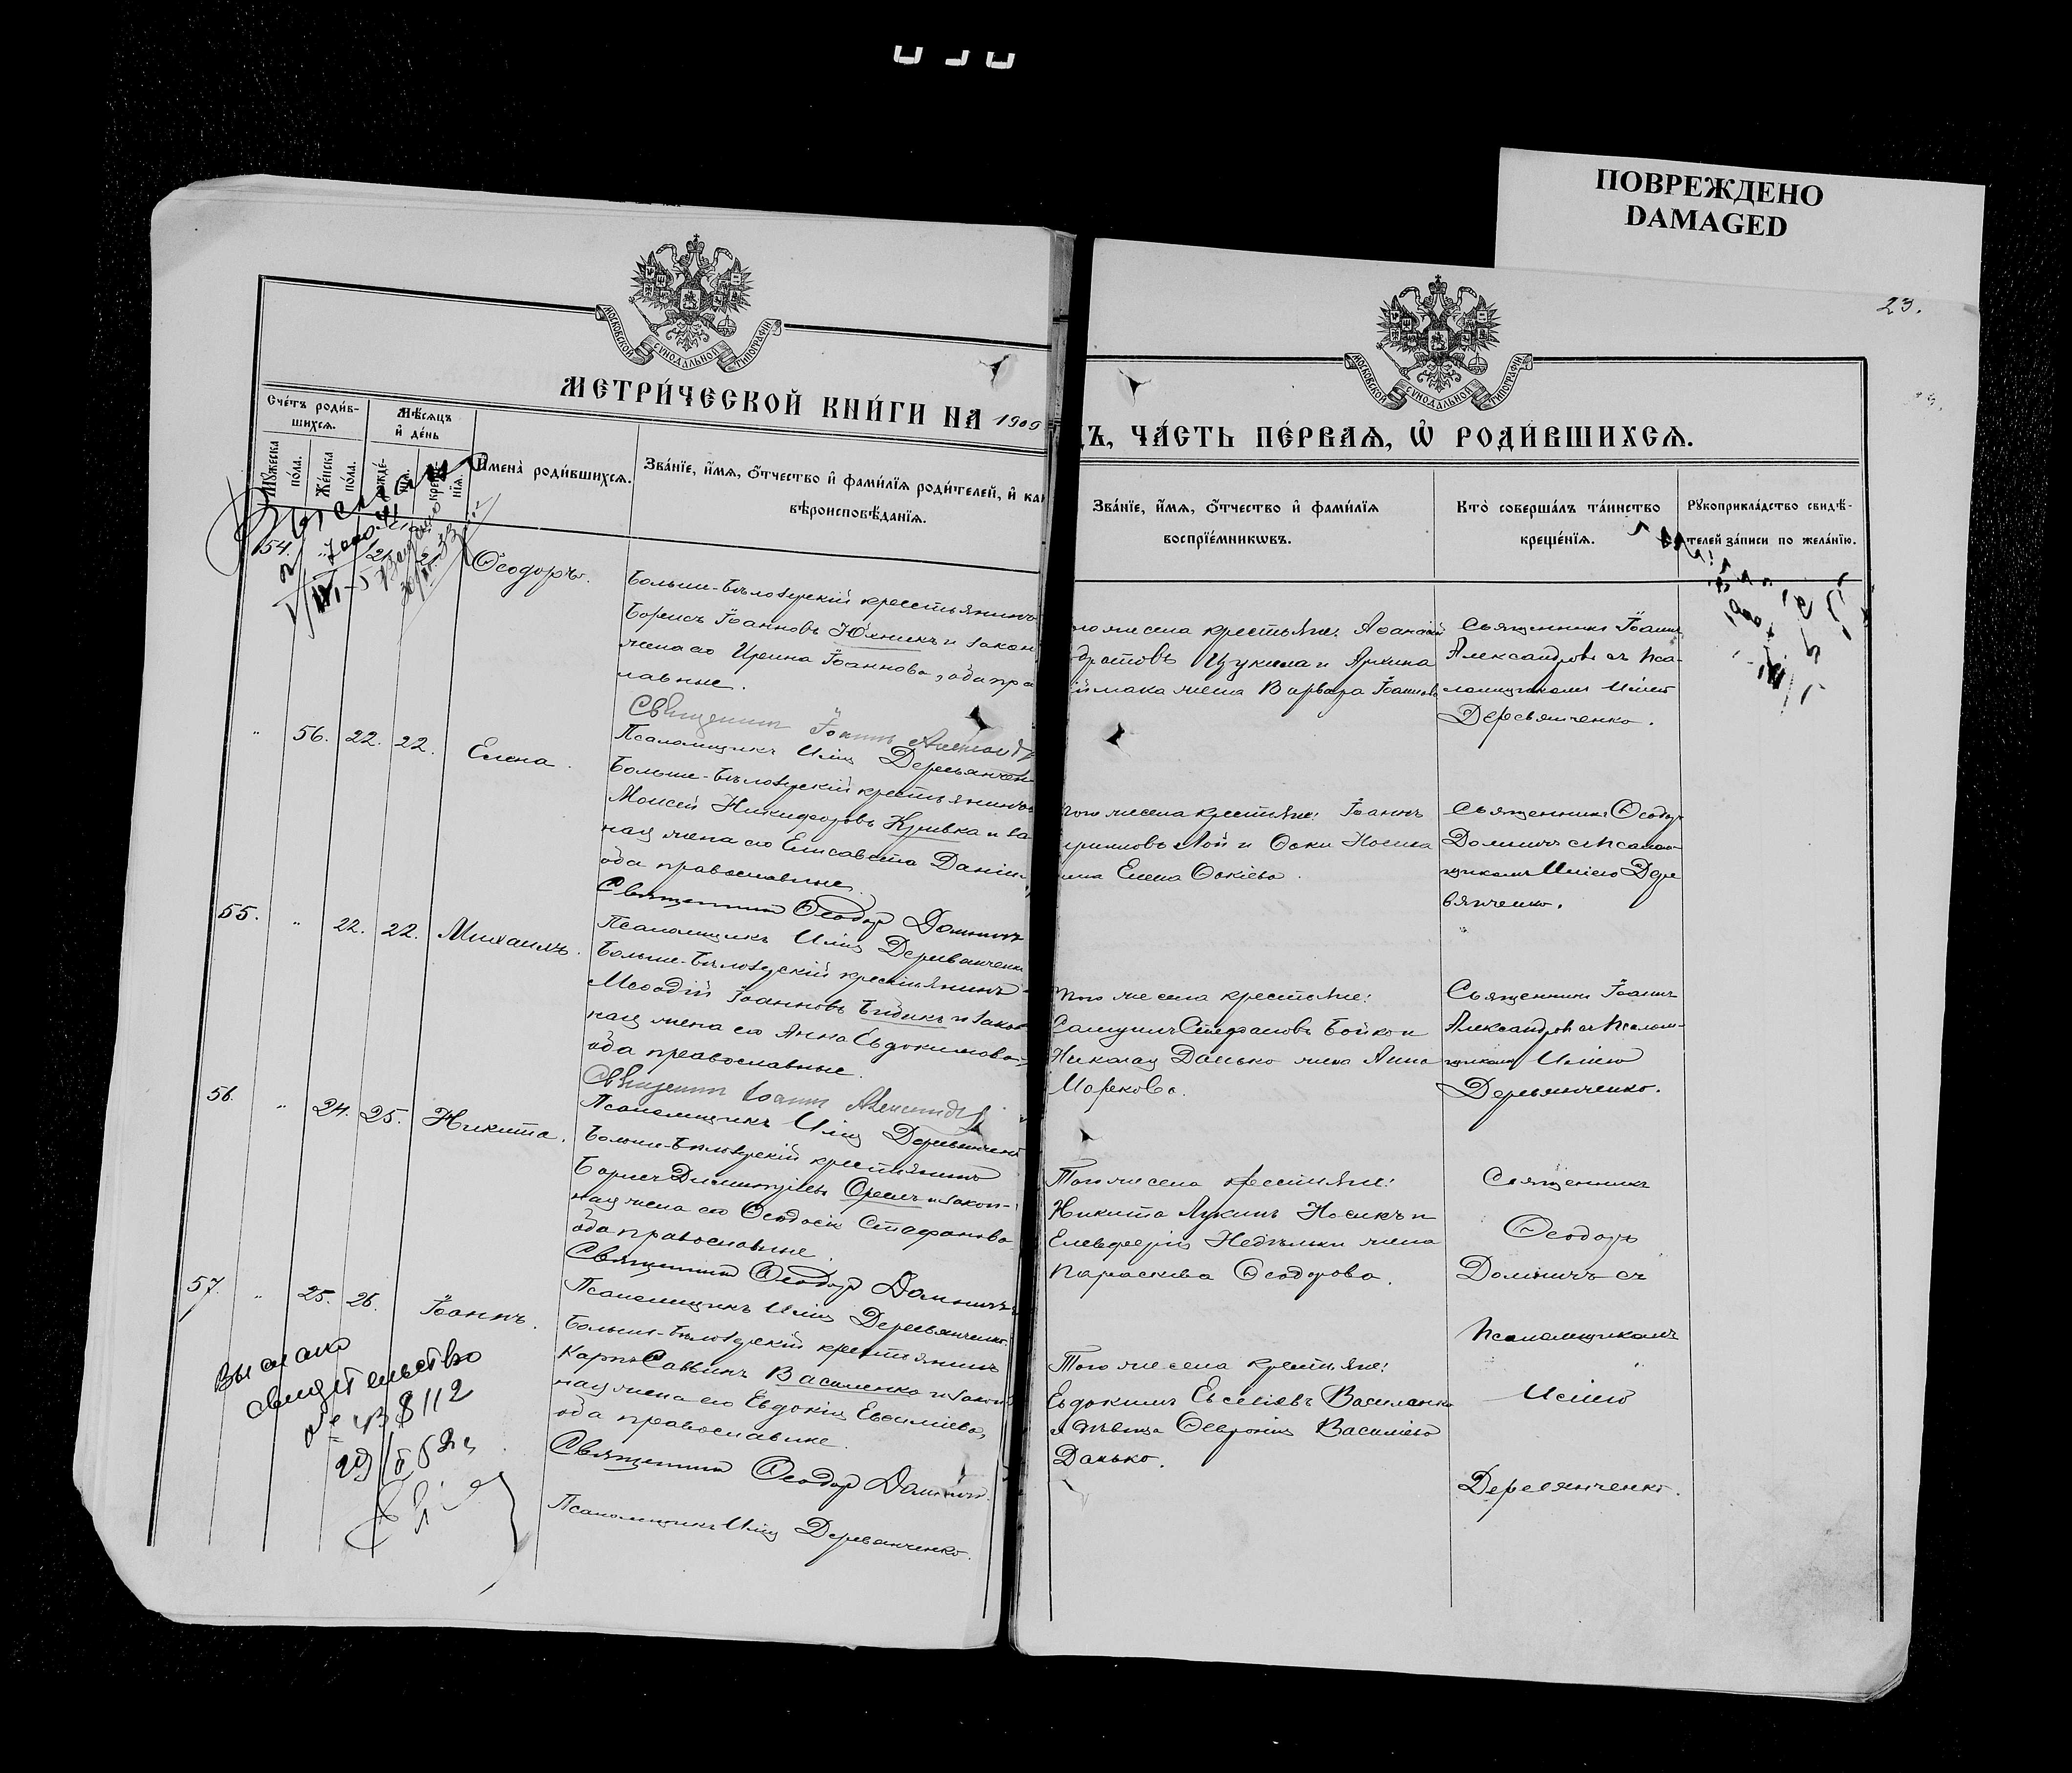 ПОВРЕЖДЕНО
DAMAGED
23.
МОСКОВСКОЙ СѴНОДАЛЬНОЙ ТИПОГРАФІИ
МОСКОВСКОЙ СѴНОДАЛЬНОЙ ТИПОГРАФІИ
МЕТРИ́ЧЕСКОЙ КНИ́ГИ НА 1909
ДЪ, ЧА́СТЬ ПЕ́РВАѦ, Ѽ РОДИ́ВШИХСѦ.
Сче́тъ роди́в-
шихсѧ.
Мꙋ́жеска по́ла.
Же́нска по́ла.
Мѣ́сѧцъ
и҆ де́нь
рожде́-
нїѧ.
креще́-
нїѧ.
И҆мена̀ роди́вшихсѧ.
Зва́нїе, и҆́мѧ, ѻ҆́тчество и҆ фами́лїѧ роди́телей, и҆ ка
вѣроисповѣ́данїѧ.
Зва́нїе, и҆́мѧ, ѻ҆́тчество и҆ фами́лїѧ
воспрїе́мникѡвъ.
Кто̀ соверша́лъ та́инство
креще́нїѧ.
Рꙋкоприкла́дство свидѣ́-
телей за́писи по жела́нїю.
54. " 21 Ѳеодоръ.
Больше-Бѣлозерскій крестьянинъ
Борисъ Іоанновъ Юхникъ и закон
жена его Ирина Іоаннова, оба пра
лавные.
Священникъ Іоаннъ Александр
Псаломщикъ Илія Деревянчен
го же села крестьяне: Аѳанасій
Цукила и Архипа
жена Варвара Іоаннова
Священникъ Іоаннъ
Александровъ съ пса-
ломщикомъ Иліею
Деревянченко.
" 56. 22. 22. Елена.
Больше-Бѣлозерскій крестьянинъ
Моисей Никифоровъ Кривка и за
ная жена его Елисавета Даніил
оба православные.
Священникъ Ѳеодоръ Домничъ
Псаломщикъ Илія Деревянченк
того же села крестьяне: Іоаннъ
Лой и Оски Носика
Елена Оскіева.
Священникъ Ѳеодоръ
Домничъ съ псалом-
щикомъ Иліею Дере
вянченко.
55. " 22. 22. Михаилъ.
Больше-Бѣлозерскій крестьянинъ
Меѳодій Іоанновъ Бидикъ и закон
ная жена его Анна Евдокимова,
оба православные.
Священникъ Іоаннъ Александр
Псаломщикъ Илія Деревянченк
того же села крестьяне:
Самуилъ Стефановъ Бойко и
Николая Данько жена Анна
Маркова.
Священникъ Іоаннъ
Александровъ съ псалом-
щикомъ Иліею
Деревянченко.
56. " 24. 25. Никита.
Больше-Бѣлозерскій крестьянинъ
Борисъ Димитріевъ Орелъ и закон-
ная жена его Ѳеодосія Стефанова
оба православные.
Священникъ Ѳеодоръ Домничъ
Псаломщикъ Илія Деревянченко.
Того же села крестьяне:
Никита Лукинъ Носикъ и
Елевферія Недѣлки жена
Параскева Ѳеодорова.
Священникъ
Ѳеодоръ
Домничъ съ
псаломщикомъ
Иліею
Деревянченко.
57. " 25. 26. Іоаннъ.
Больше-Бѣлозерскій крестьянинъ
Карпъ Саввинъ Василенко и закон
ная жена его Евдокія Евсиміева,
оба православные.
Священникъ Ѳеодоръ Домничъ
Псаломщикъ Илія Деревянченко.
Того же села крестьяне:
Евдокимъ Евсевіевъ Василенко
и дѣвица Ѳевронія Василіева
Данько.
Выдано
свидетельство
№ 8112